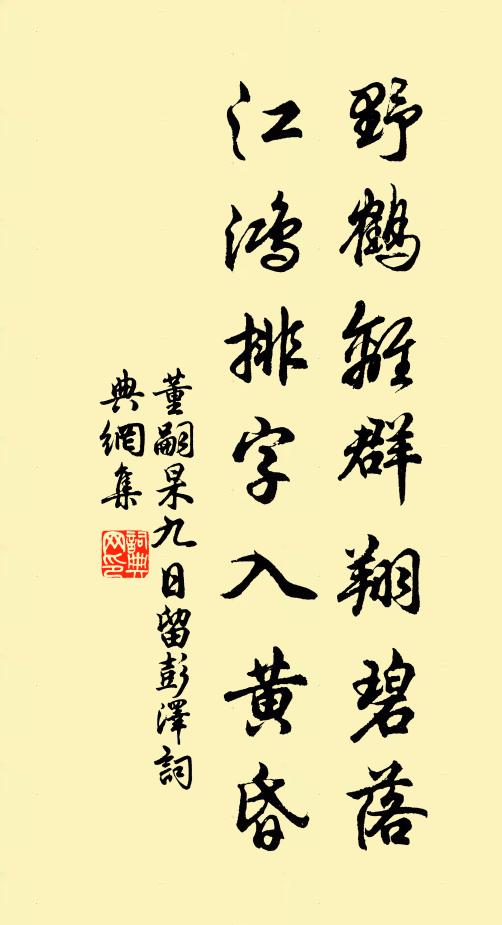 野鶴離群翔碧落
江鴻排字入黄昏
董嗣杲九日留彭澤詞
典網集
詞典
网印